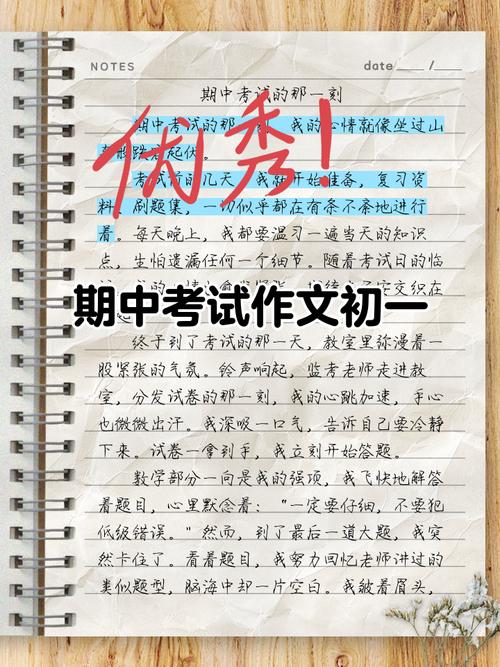 NOTES
date ___ / ___
期中考试的那一刻
期中考试的那一刻，我的心情就像坐过山
车般跌宕起伏。
优秀！
考试前的几天，我就开始准备，复习资
料，刷题集，一切似乎都在有条不紊地进行
着。每天晚上，我都要温习一遍当天的知识
点，生怕遗漏任何一个细节。随着考试日的临
交织在
期中考试作文初一
终于到了考试的那一天，教室里弥漫着一
股紧张的气氛。铃声响起，监考老师走进教
室，分发试卷的那一刻，我的心跳加速，手心
也微微出汗。我深吸一口气，告诉自己要冷静
下来。试卷一拿到手，我立刻开始答题。
数学部分一向是我的强项，我飞快地解答
着题目，心里默念着：“一定要仔细，不要犯
低级错误。”然而，到了最后一道大题，我突
然卡住了。看着题目，我努力回忆老师讲过的
类似题型，脑海中却一片空白。我皱着眉头，